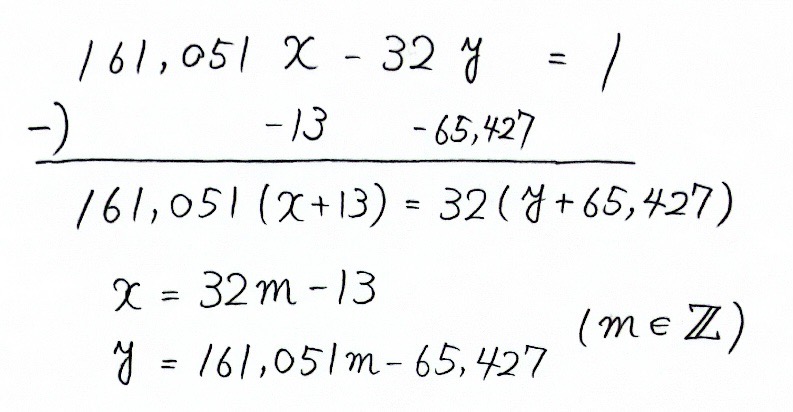 161,051 x - 32 y = 1
-) -13 -65,427
161,051 (x+13) = 32 (y+65,427)
x = 32m - 13
(m ∈ ℤ)
y = 161,051m - 65,427